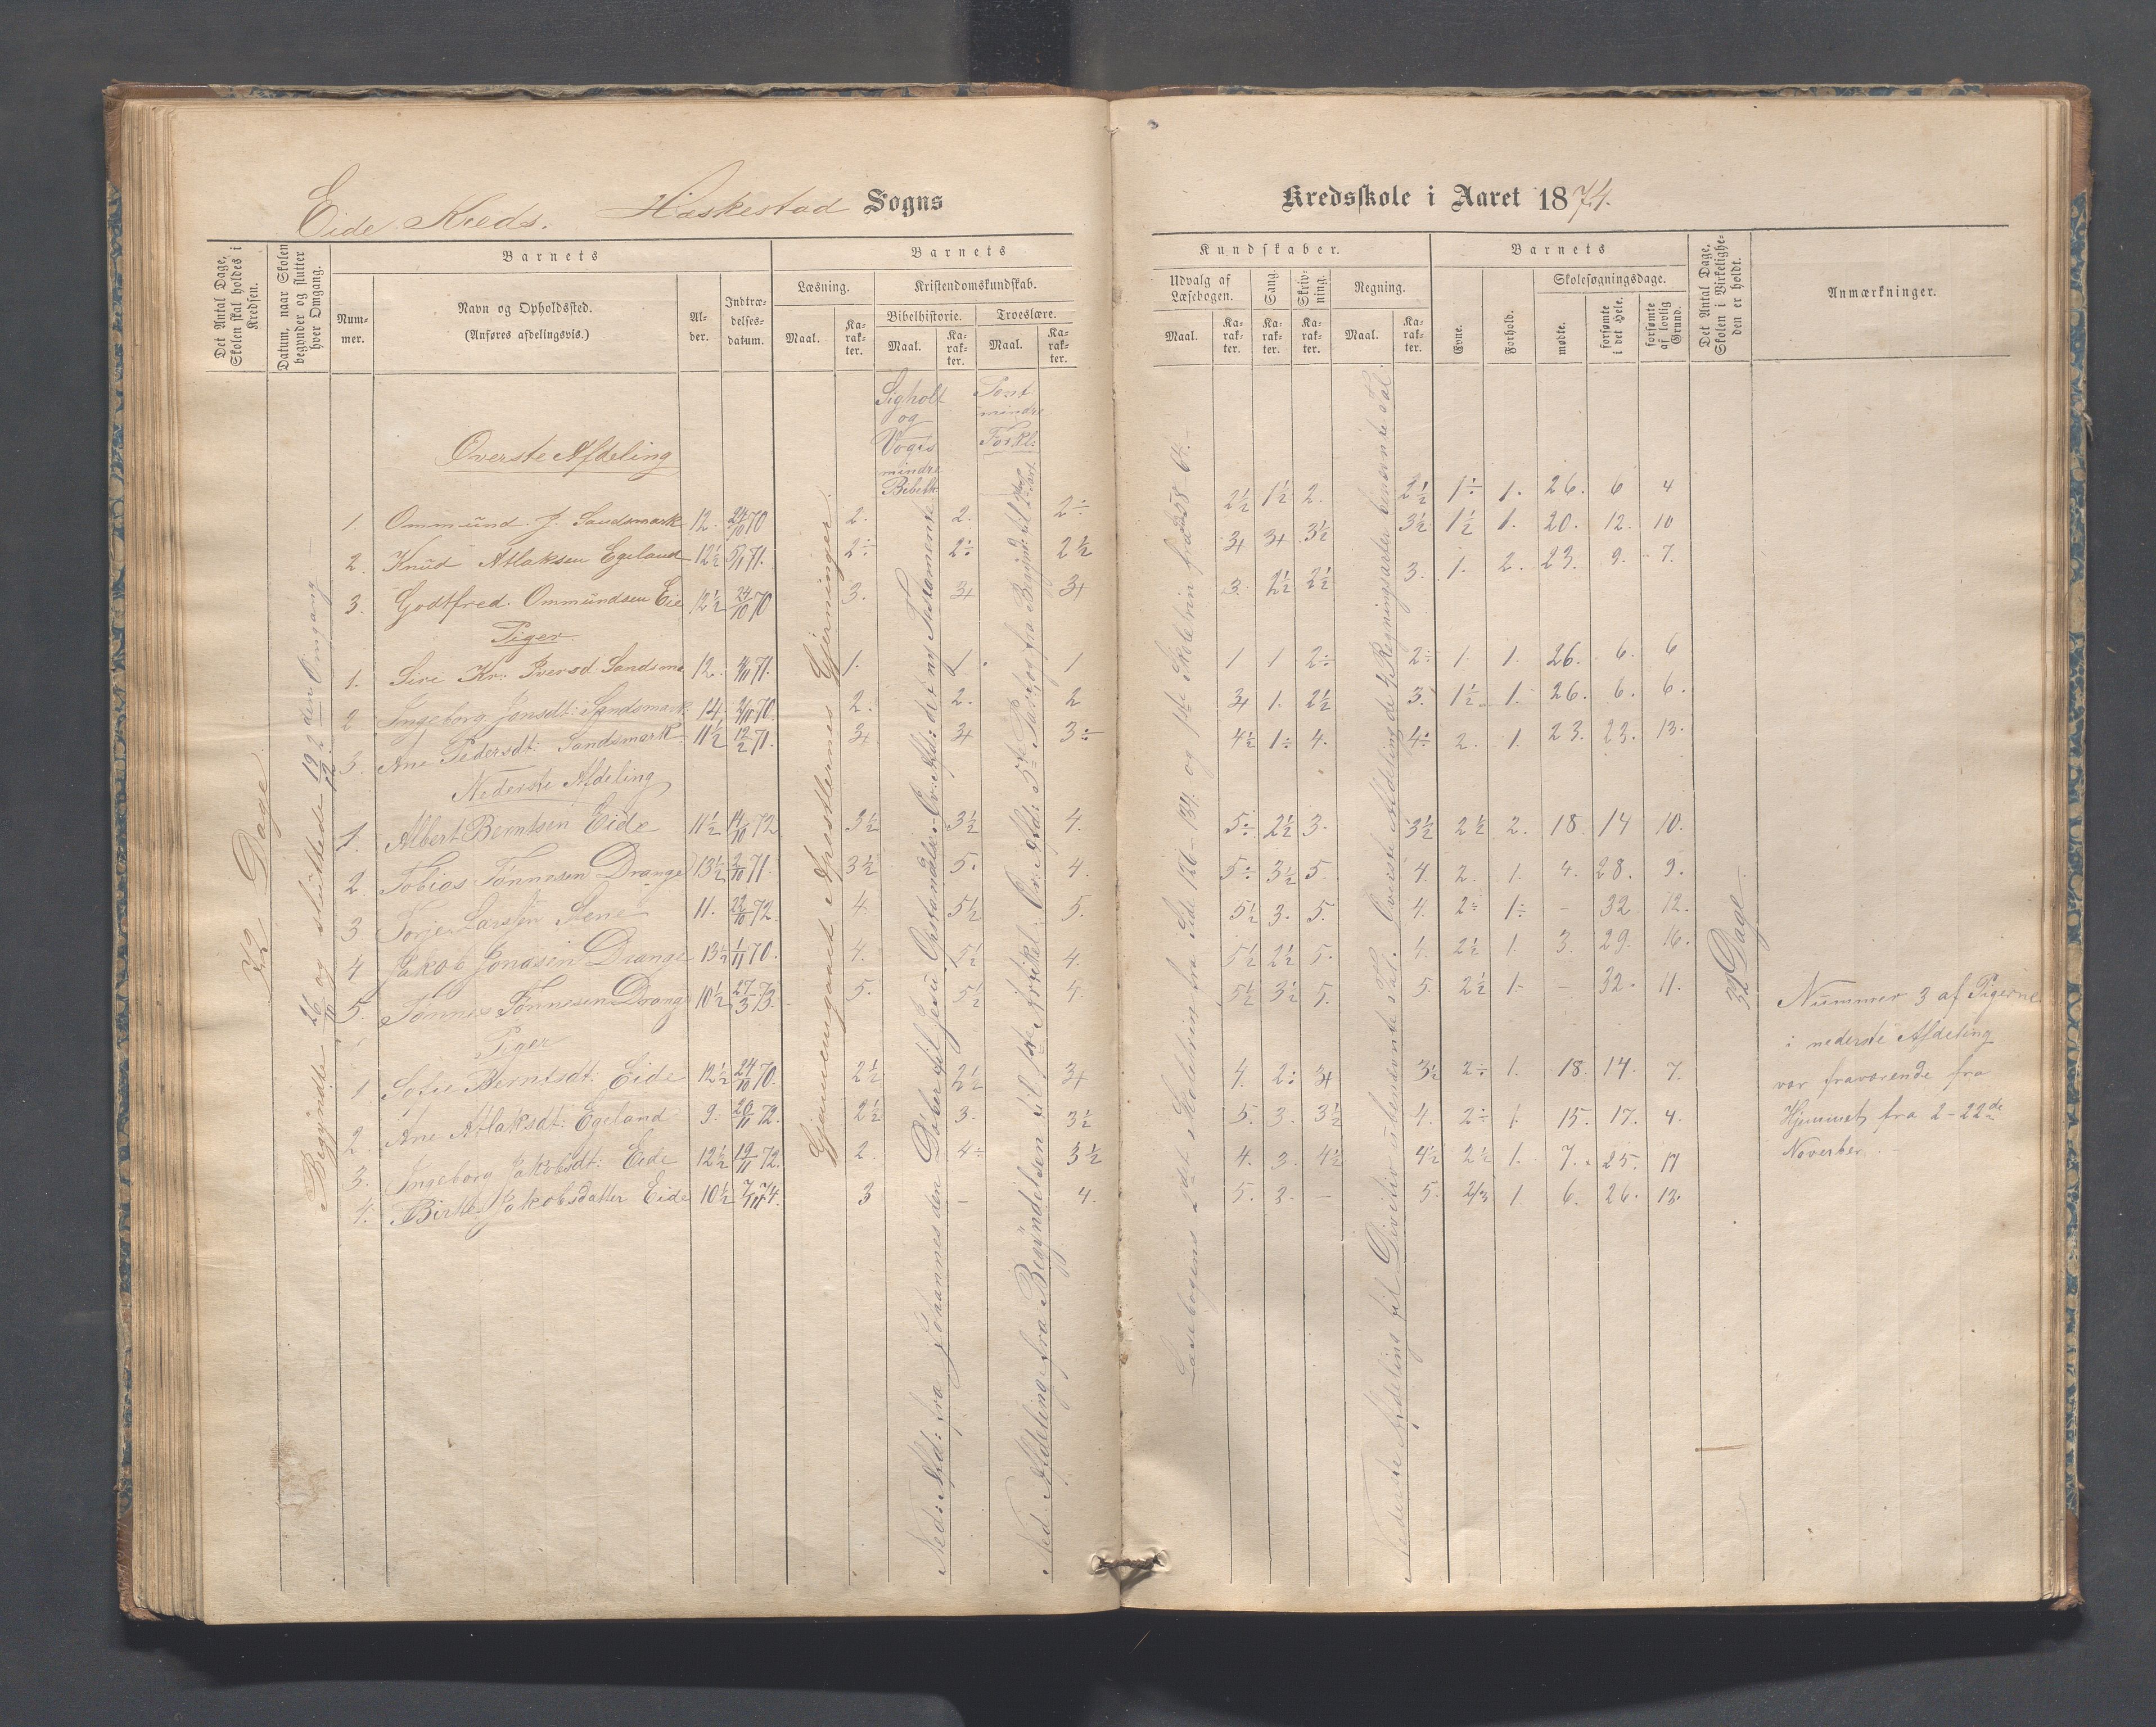 Eide Kreds. Haskestad Sogns
Kredsskole i Aaret 1874.
Det Antal Dage, Skolen skal holdes i Kredsen.
Datum, naar Skolen begynder og slutter hver Omgang.
Barnets
Nummer.
Navn og Opholdssted.
(Anføres afdelingsvis.)
Alder.
Indtrædelsesdatum.
Barnets
Læsning.
Maal.
Karakter.
Kristendomskundskab.
Bibelhistorie.
Maal.
Karakter.
Troeslære.
Maal.
Karakter.
Kundskaber.
Udvalg af Læsebogen.
Maal.
Karakter.
Sang.
Karakter.
Skrivning.
Karakter.
Regning.
Maal.
Karakter.
Barnets
Evne.
Forhold.
Skolesøgningsdage.
mødte.
forsømte i det Hele.
forsømte af lovlig Grund.
Det Antal Dage, Skolen i Virkeligheden er holdt.
Anmærkninger.
Dage
Begyndte 26/11 og sluttede 19/12 2den Omgang
Gjennemgaaet Apostlernes Gjerninger.
Sigholt
og
Vogts
mindre
Bibelh:
Pont
mindre
Forkl:
Øverste Afdeling
1. Ommund J. Sandsmark 12. 24/10 70 2. 2. 2÷ 2½ 1½ 2. 2½ 1÷ 1. 26. 6 4
2. Knud Atlaksen Egeland 12½ 5/11 71. 2÷ 2÷ 2½ 3+ 3+ 3½ 3½ 1½ 1. 20. 12. 10
3. Godtfred Ommundsen Eie 12½ 24/10 70 3. 3+ 3+ 3. 2½ 2½ 3. 1. 2. 23. 9. 7.
Piger
1. Sire Kr: Iversd Sandsma 12. 4/11 71. 1. 1. 1 1 1 2÷ 2÷ 1. 1. 26. 6. 6
2 Ingeborg Jonsdt: Sandsmark 14. 2/11 70. 2. 2. 2 3+ 1. 2½ 3. 1½ 1. 26. 6. 6.
3. Ane Pedersdt: Sandsmark 11½ 12/2 71. 3+ 3+ 3÷ 4½ 1÷ 4. 4÷ 2. 1. 23. 23. 13.
Nederste Afdeling
1. Albert Berntsen Eide 11½ 14/10 72 3½ 3½ 4. 5÷ 2½ 3. 3½ 2½ 2. 18. 14 10.
2. Tobias Tønnesen Drange 13½ 2/10 71. 3½ 5. 4. 5÷ 3½ 5. 4. 2. 1. 4. 28. 9.
3 Torjer Larsen Stene 11. 22/10 72. 4 5½ 5. 5½ 3. 5. 4. 2÷ 1÷ – 32 12.
4 Jakob Jonasen Drange 13½ 1/11 70. 4. 5½ 4. 5½ 2½ 5. 4. 2½ 1. 3. 29. 16.
5. Tønnes Tønnesen Drange 10½ 27/3 73. 5. 5½ 4. 5½ 3½ 5. 5. 2½ 1. – 32. 11.
Piger
1. Sofie Berntsdt: Eide 12½ 24/10 70. 2½ 2½ 3+ 4. 2÷ 3+ 3½ 2÷ 1. 18. 14. 7.
2. Ane Atlaksdt: Egeland 9. 20/11 72. 2½ 3. 3½ 5. 3. 3½ 4. 2÷ 1. 15. 17. 4.
3. Ingeborg Jakobsdt: Eide 12½ 19/11 72. 2. 4÷ 3½ 4. 3. 4½ 4½ 2½ 1. 7. 25. 17
4. Birte Jakobsdatter Eide 10½ 7/11 74. 3 – 4. 5. 3. – 5. 2/3 1. 6. 26. 13.
Ned: Afd: fra Johannes den Døber til Jesu Opstandelse. Øv: Afd: det ny Testamente
Ned: Afdeling fra Begyndelsen til 1ste Artikel. Øv: Afd:
Læsebogens 2det Skoletrin fra Side 126–134. og 1ste Skoletrin fra 58–64.
Nederste Afdeling til Division i ubenævnte Tal. Øverste Afdeling de 4 Regningsarter i benævnte Tal.
32 Dage
Nummer 3 af Pigerne
i nederste Afdeling
var fraværende fra
Hjemmet fra 2–22de
November.